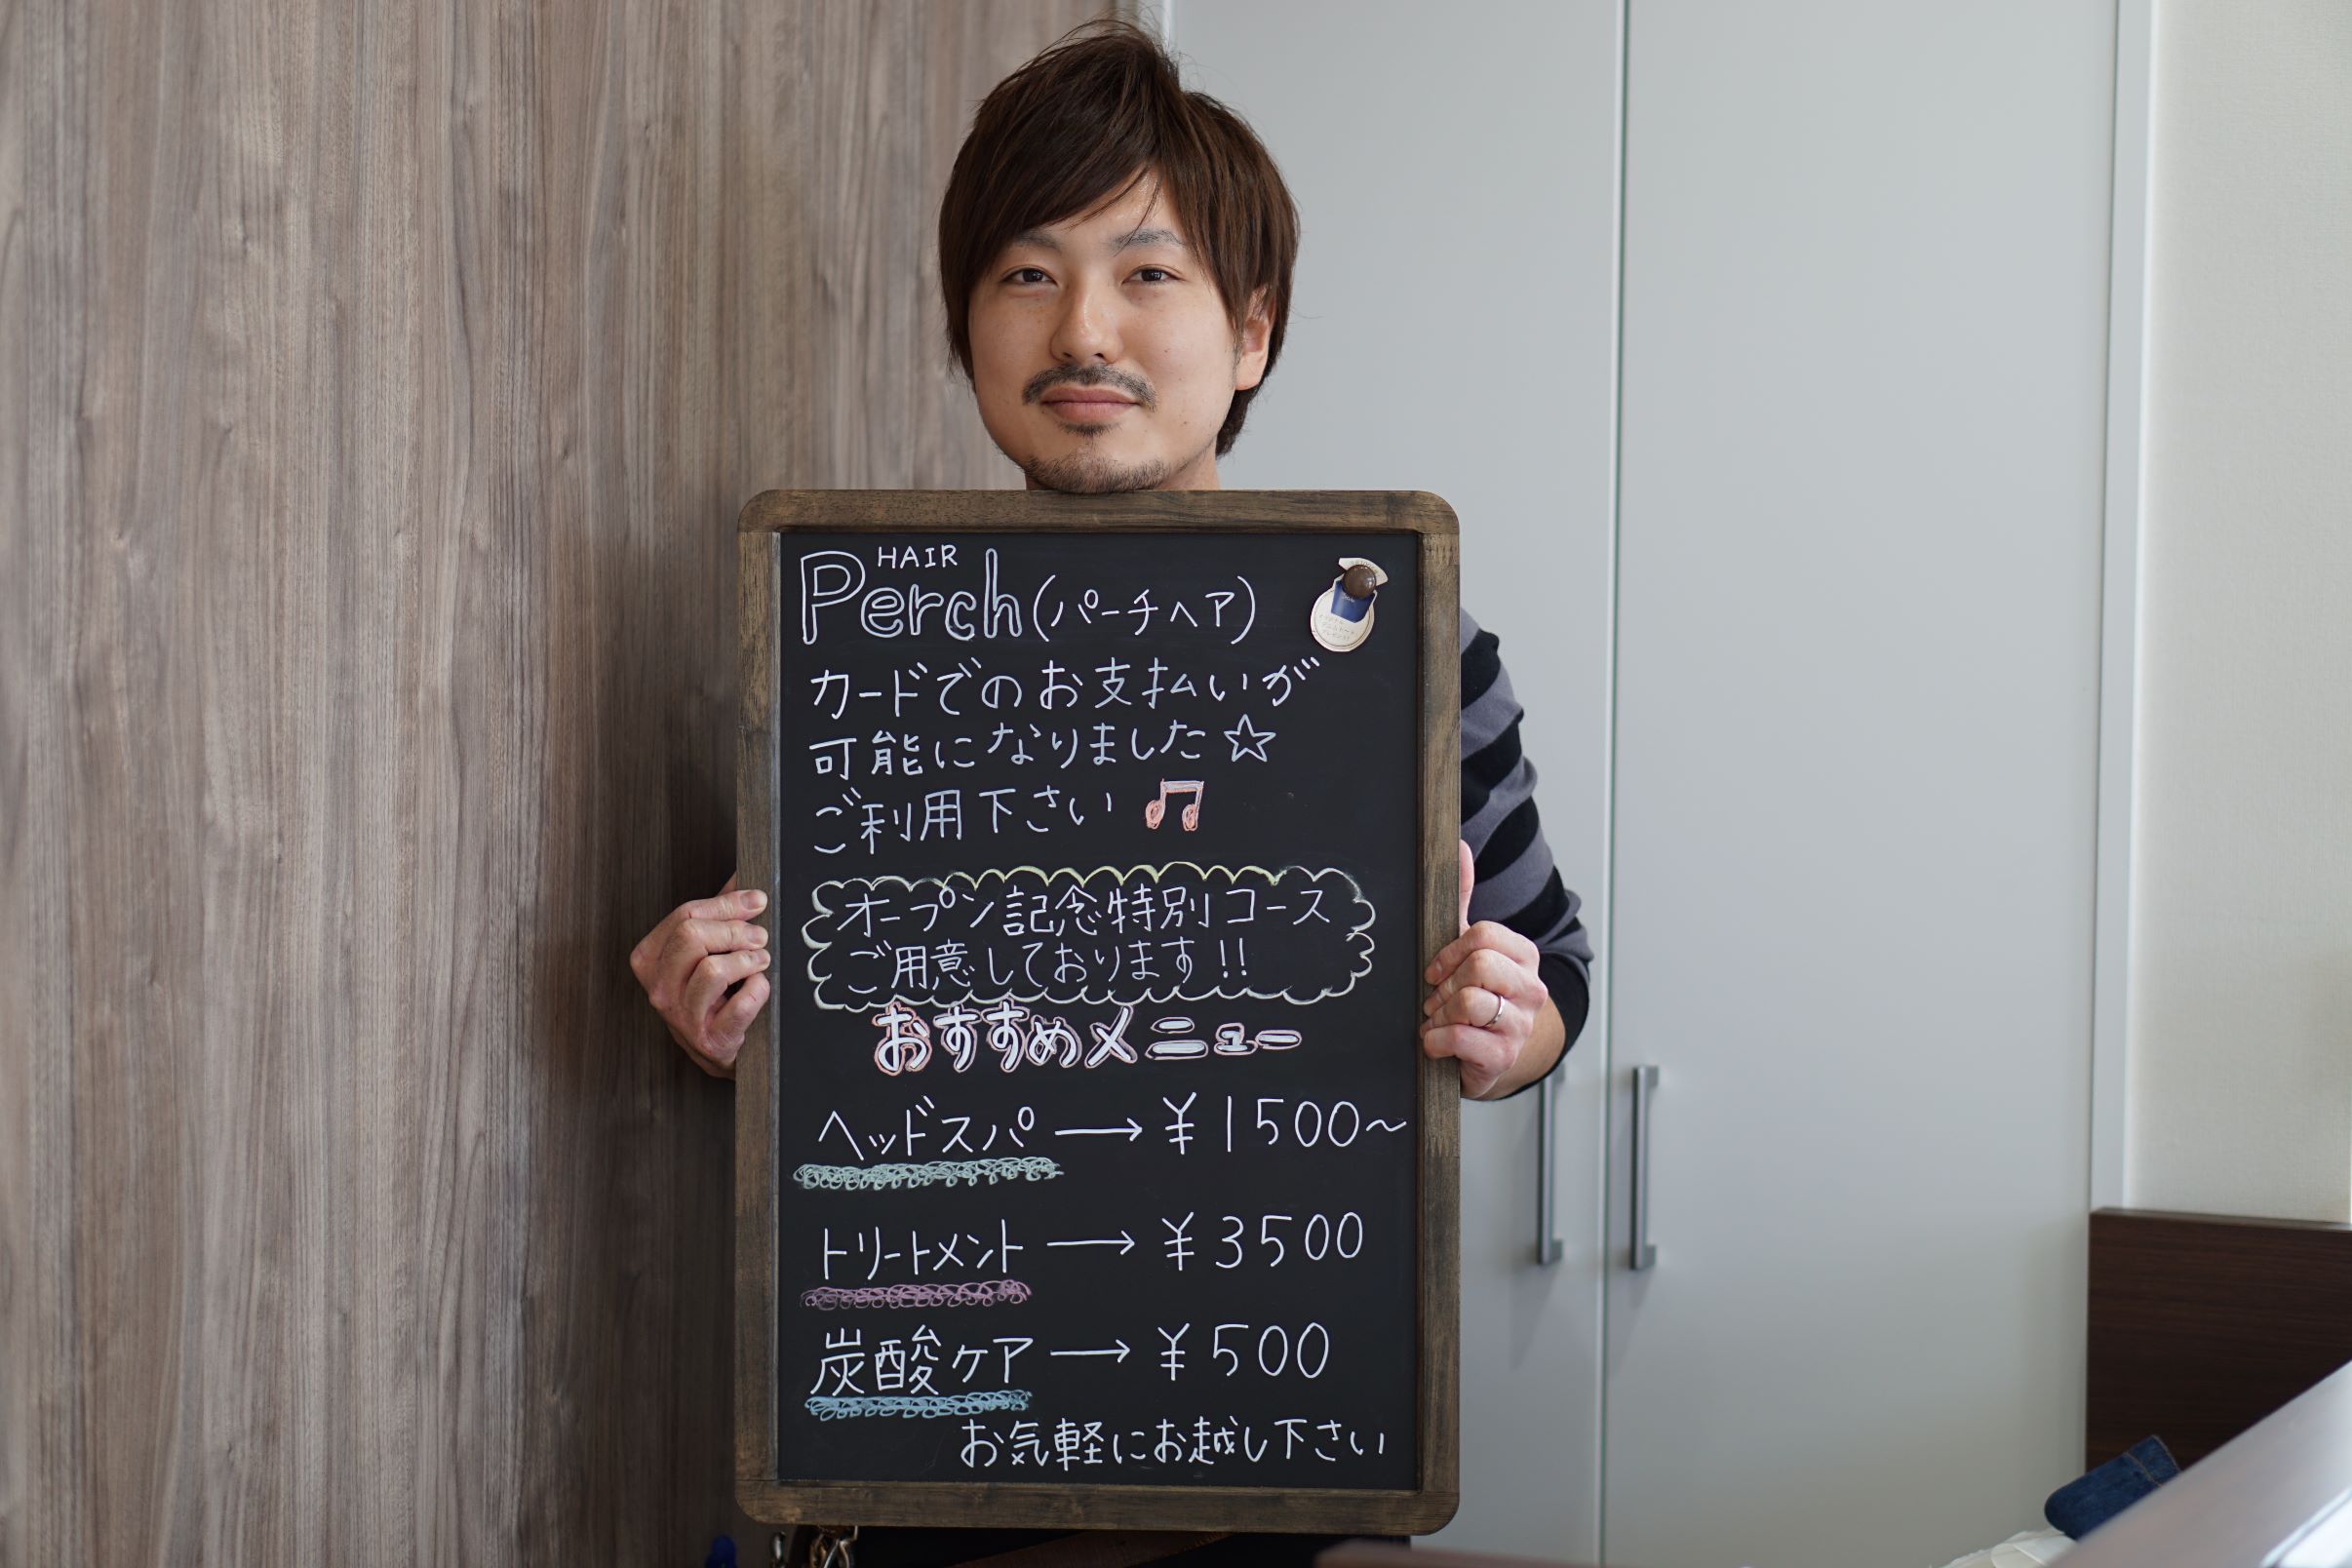 HAIR
Perch(パーチヘア)
カードでのお支払いが
可能になりました☆
ご利用下さい♫
オープン記念特別コース
ご用意しております!!
おすすめメニュー
ヘッドスパ→¥1500~
トリートメント→¥3500
炭酸ケア→¥500
お気軽にお越し下さい